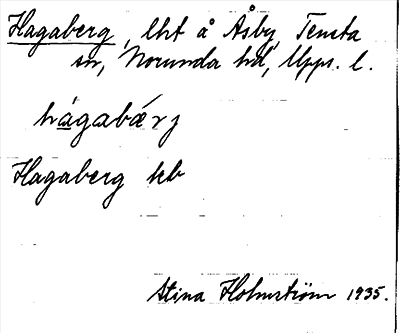 Hagaberg, lht å Åsby, Tensta
sn, Norunda hd, Upps. l.
hágabǽrj
Hagaberg kb
Stina Holmström 1935.